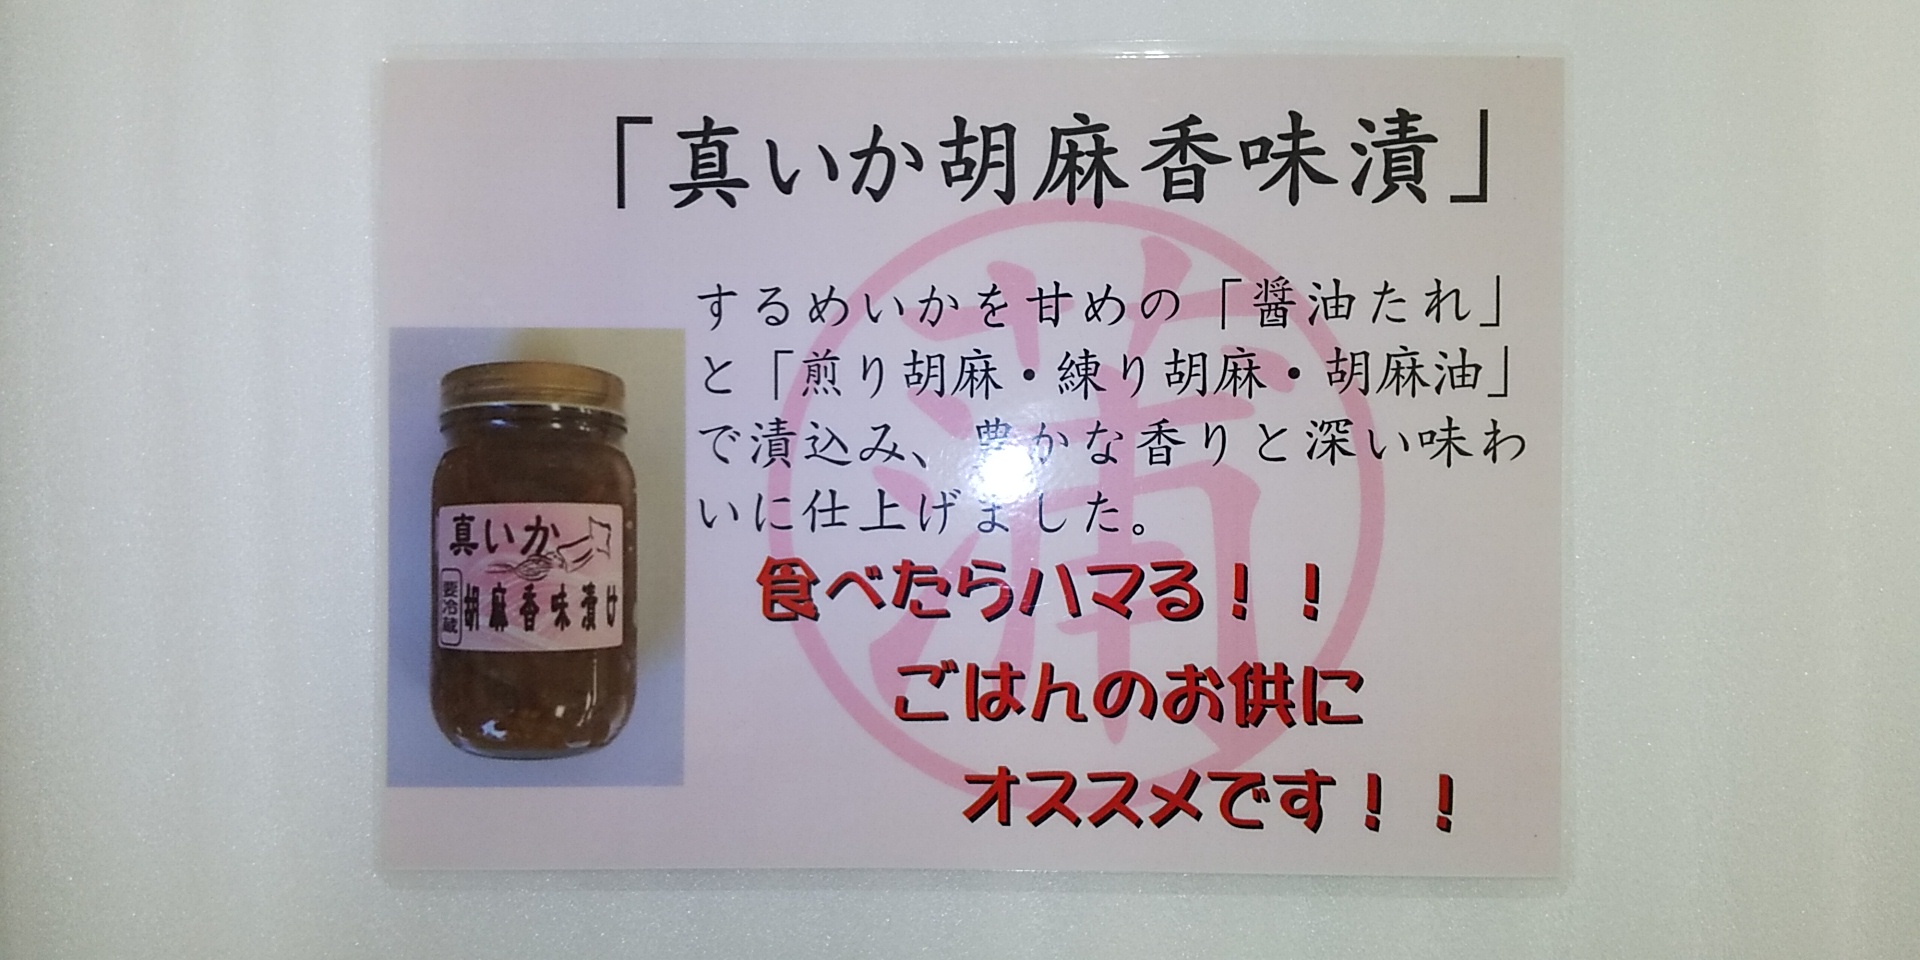 「真いか胡麻香味漬」
するめいかを甘めの「醤油たれ」
と「煎り胡麻・練り胡麻・胡麻油」
で漬込み、豊かな香りと深い味わ
いに仕上げました。
食べたらハマる！！
ごはんのお供に
オススメです！！
蒲
真いか
胡麻香味漬け
要冷蔵